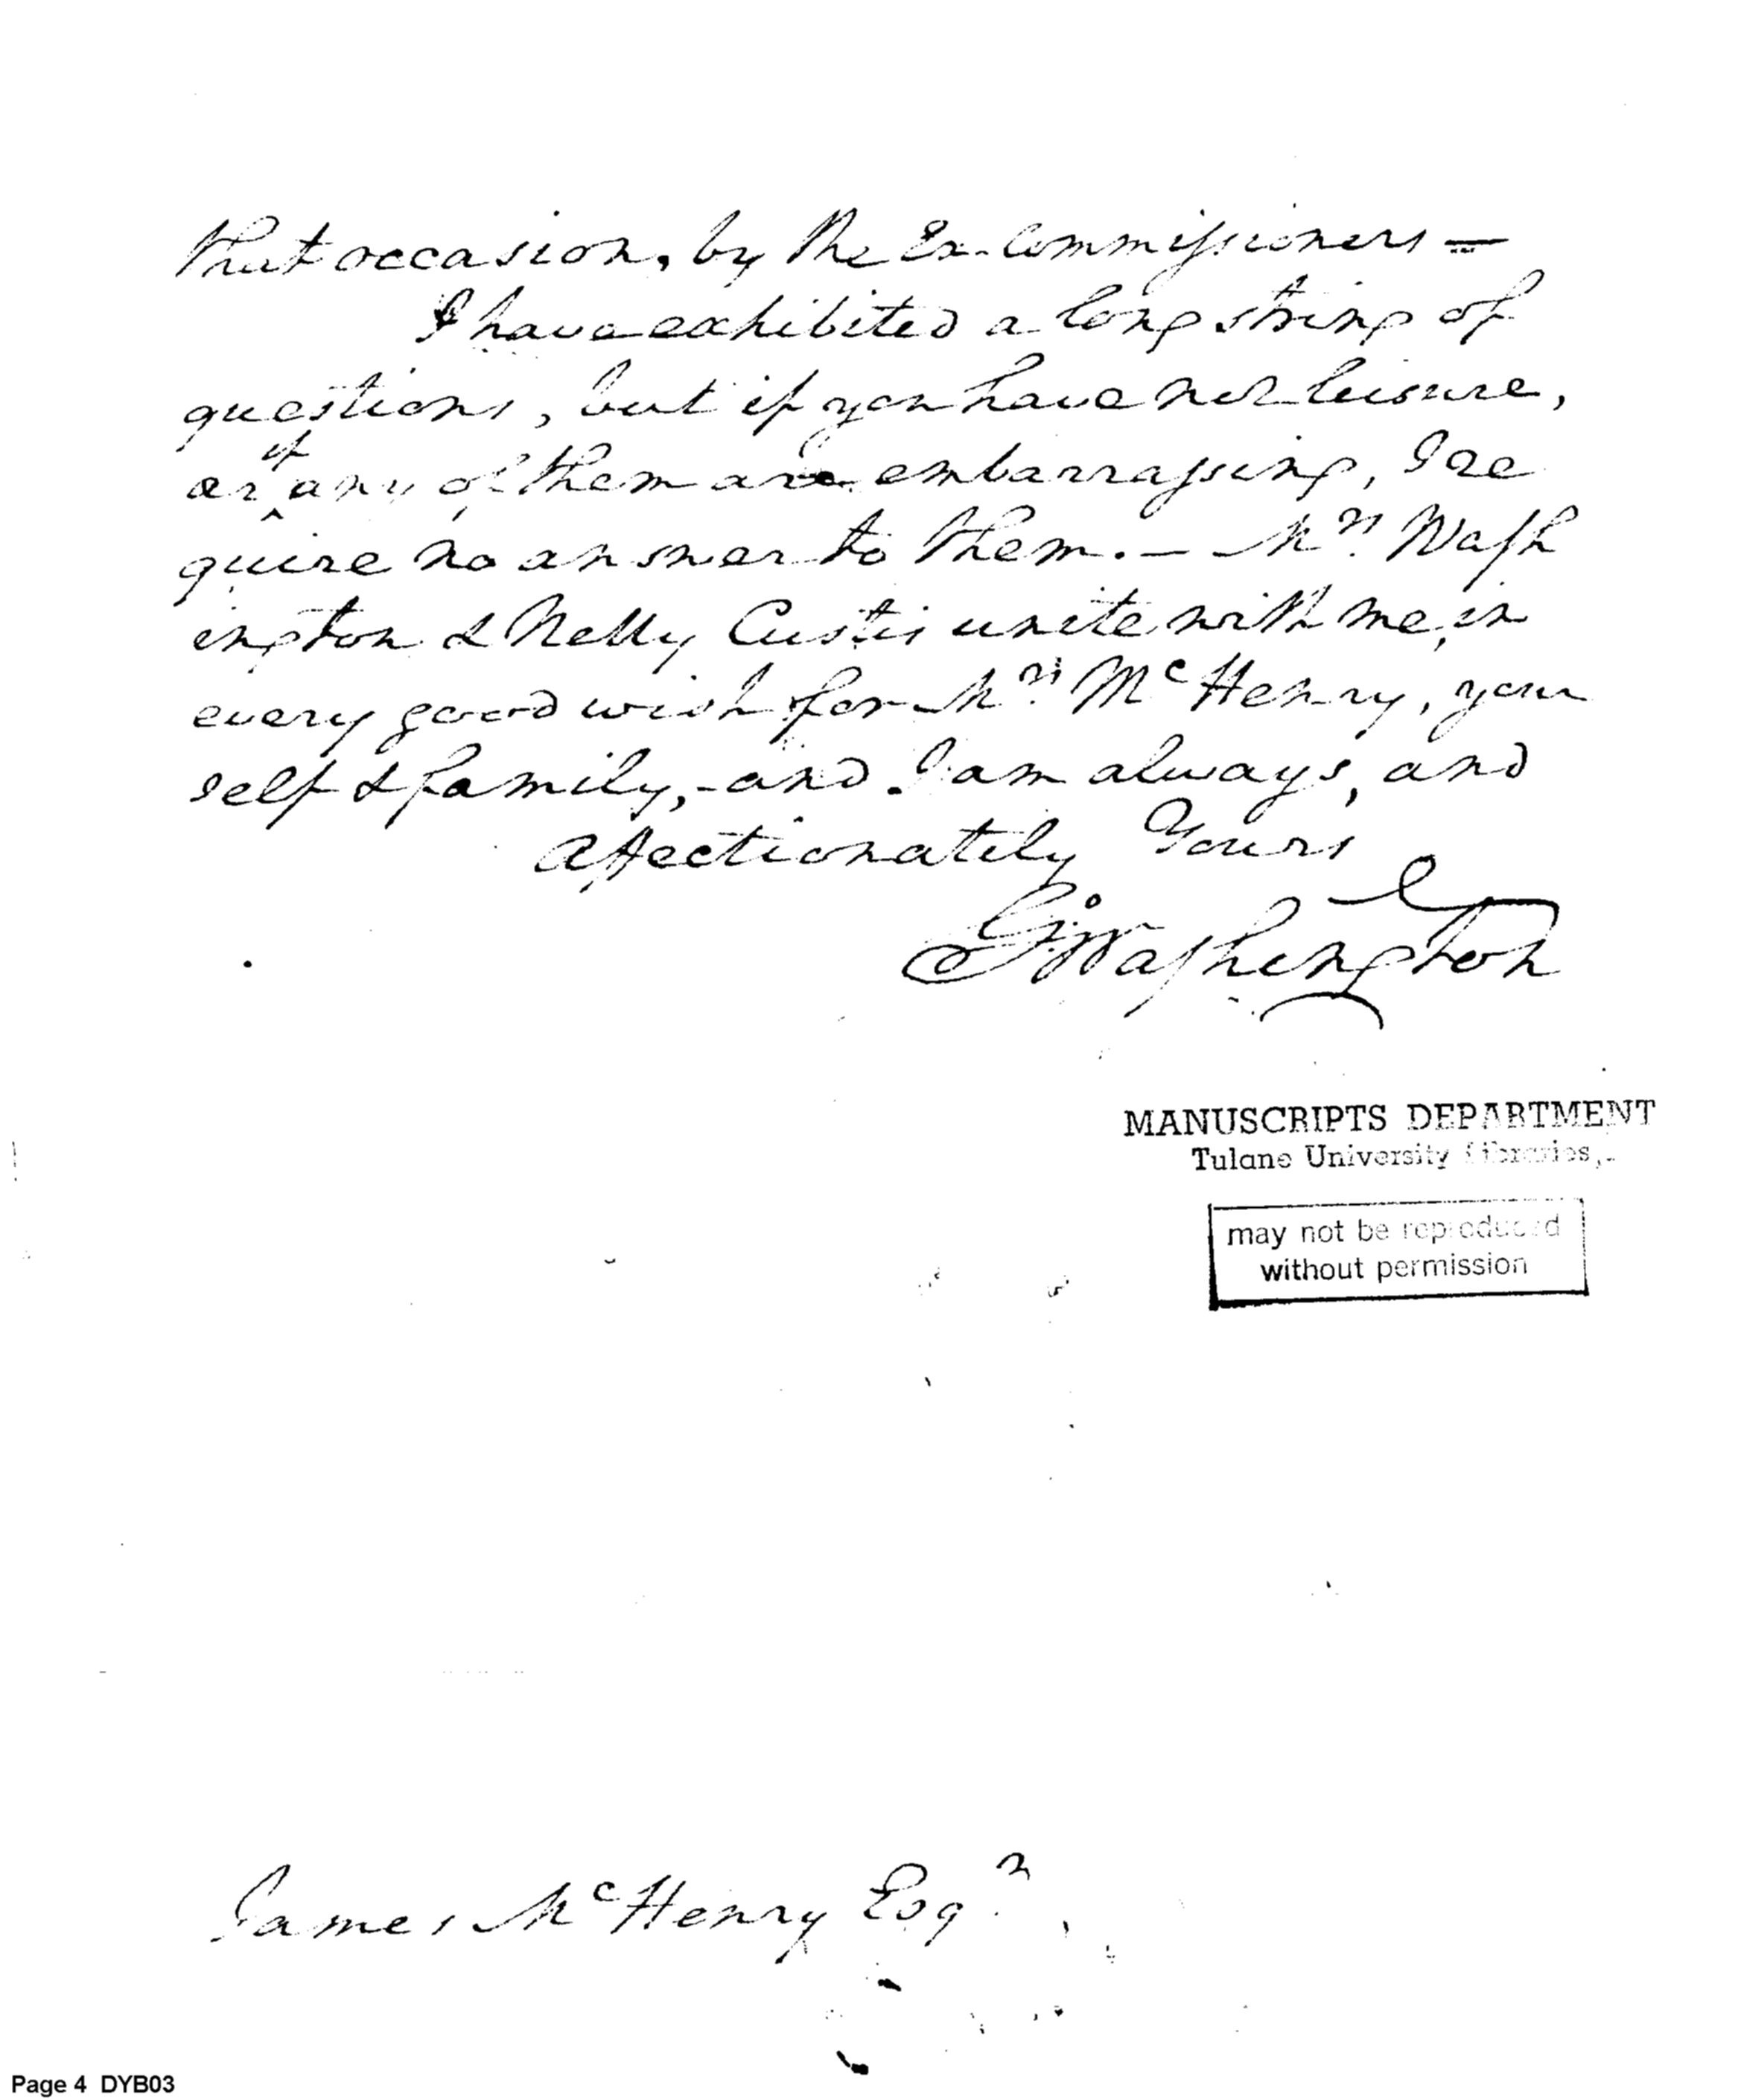 that occasion, by the Ex-Commissioners—
I have exhibited a long string of
questions, but if you have not leisure,
or if any of them are embarrassing, I re
quire no answer to them.— Mrs. Wash
ington & Nelly Custis unite with me, in
every good wish for Mrs. McHenry, your
self & family,—and I am always, and
Affectionately Yours
Go: Washington
MANUSCRIPTS DEPARTMENT
Tulane University Libraries,
may not be reproduced
without permission
James McHenry Esqr.
Page 4 DYB03